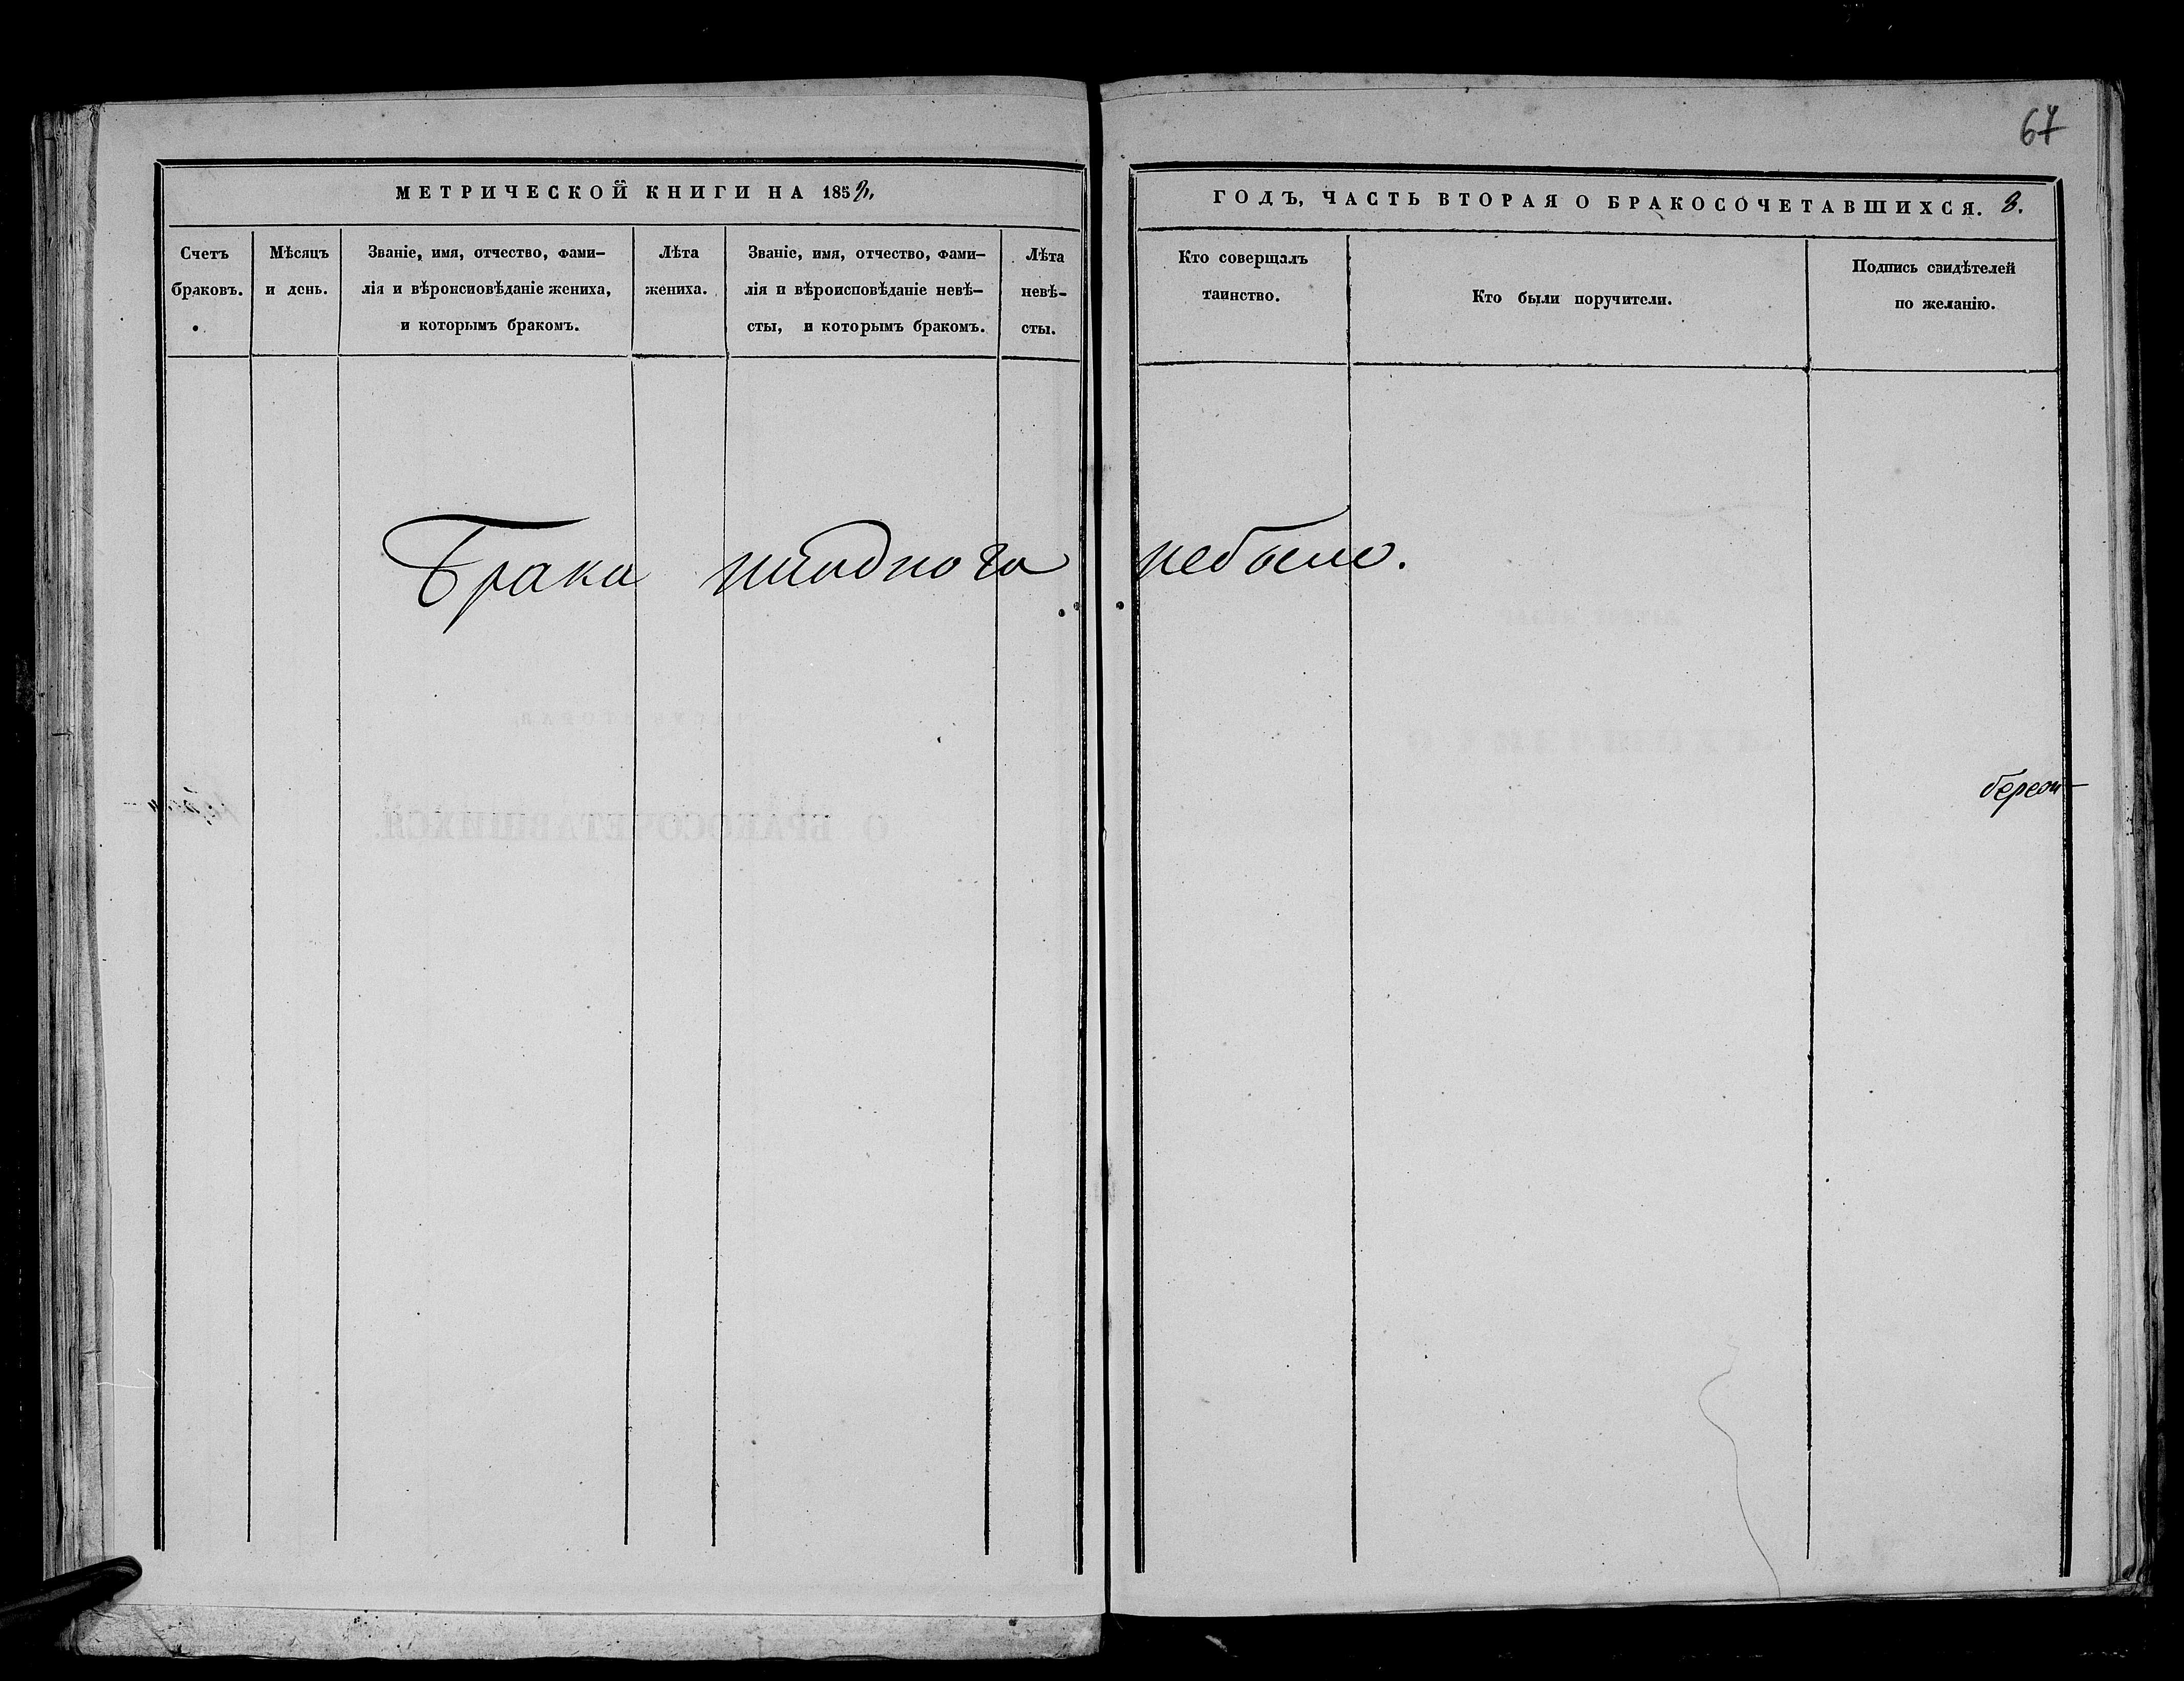 67
МЕТРИЧЕСКОЙ КНИГИ НА 1853,
ГОДЪ, ЧАСТЬ ВТОРАЯ О БРАКОСОЧЕТАВШИХСЯ. 8.
Счетъ
браковъ.
Мѣсяцъ
и день.
Званіе, имя, отчество, фами-
лія и вѣронсиовѣданіе жениха,
и которымъ бракомъ.
Лѣта
жениха.
Званіе, имя, отчество, фами-
лія и вѣроисповѣданіе невѣ-
сты, и которымъ бракомъ.
Лѣта
невѣ-
сты.
Кто соверщалъ
таинство.
Кто были поручители.
Подпись свидѣтелей
по желанію.
Брака ниоднога небыло.
О БРАКОСОЧЕТАВШИХСЯ.